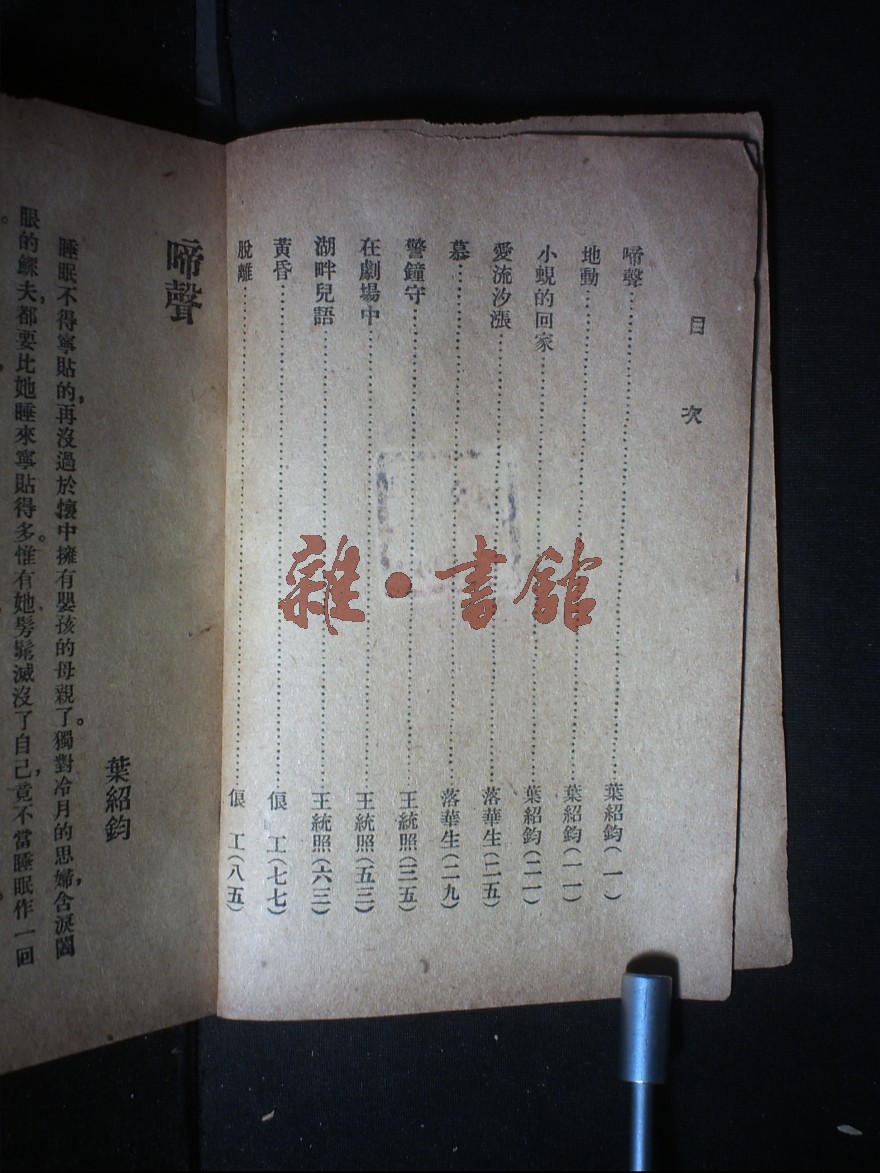 目次
啼聲⋯⋯葉紹鈞(一)
地動⋯⋯葉紹鈞(一一)
小蜆的回家⋯⋯葉紹鈞(二一)
愛流汐漲⋯⋯落華生(二五)
慕⋯⋯落華生(二九)
警鐘守⋯⋯王統照(三五)
在劇場中⋯⋯王統照(五三)
湖畔兒語⋯⋯王統照(六三)
黃昏⋯⋯俍工(七七)
脫離⋯⋯俍工(八五)
啼聲
葉紹鈞
睡眠不得寧貼的,再沒過於懷中擁有嬰孩的母親了。獨對冷月的思婦,含淚闔
眼的鰥夫,都要比她睡來寧貼得多。惟有她髣髴滅沒了自己,竟不當睡眠作一回
雜·書館